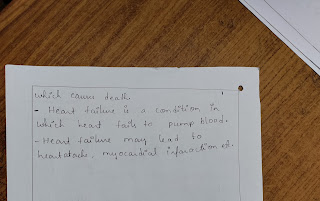 which causes death.
- Heart failure is a condition in
which heart fails to pump blood.
- Heart failure may lead to
heartattack, myocardial infarction etc.